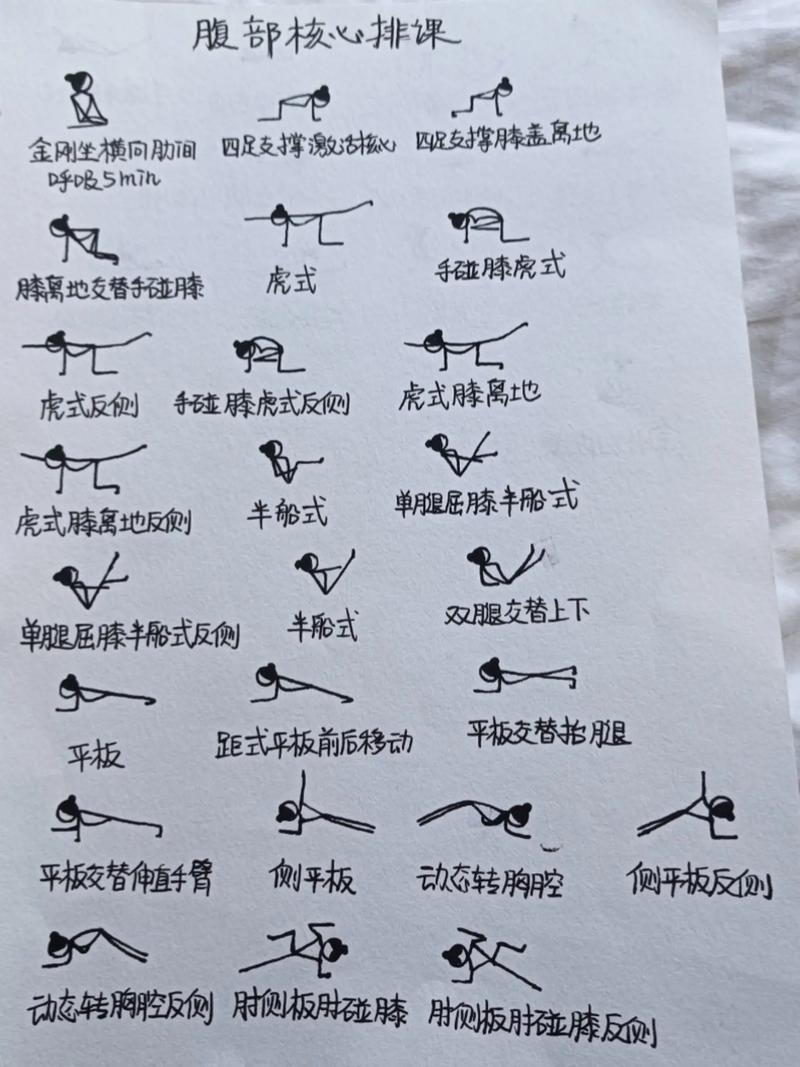 腹部核心排课
金刚坐横向肋间
呼吸5min
四足支撑激活核心
四足支撑膝盖离地
膝离地交替手碰膝
虎式
手碰膝虎式
虎式反侧
手碰膝虎式反侧
虎式膝离地
虎式膝离地反侧
半船式
单腿屈膝半船式
单腿屈膝半船式反侧
半船式
双腿交替上下
平板
距式平板前后移动
平板交替抬腿
平板交替伸直手臂
侧平板
动态转胸腔
侧平板反侧
动态转胸腔反侧
肘侧板肘碰膝
肘侧板肘碰膝反侧